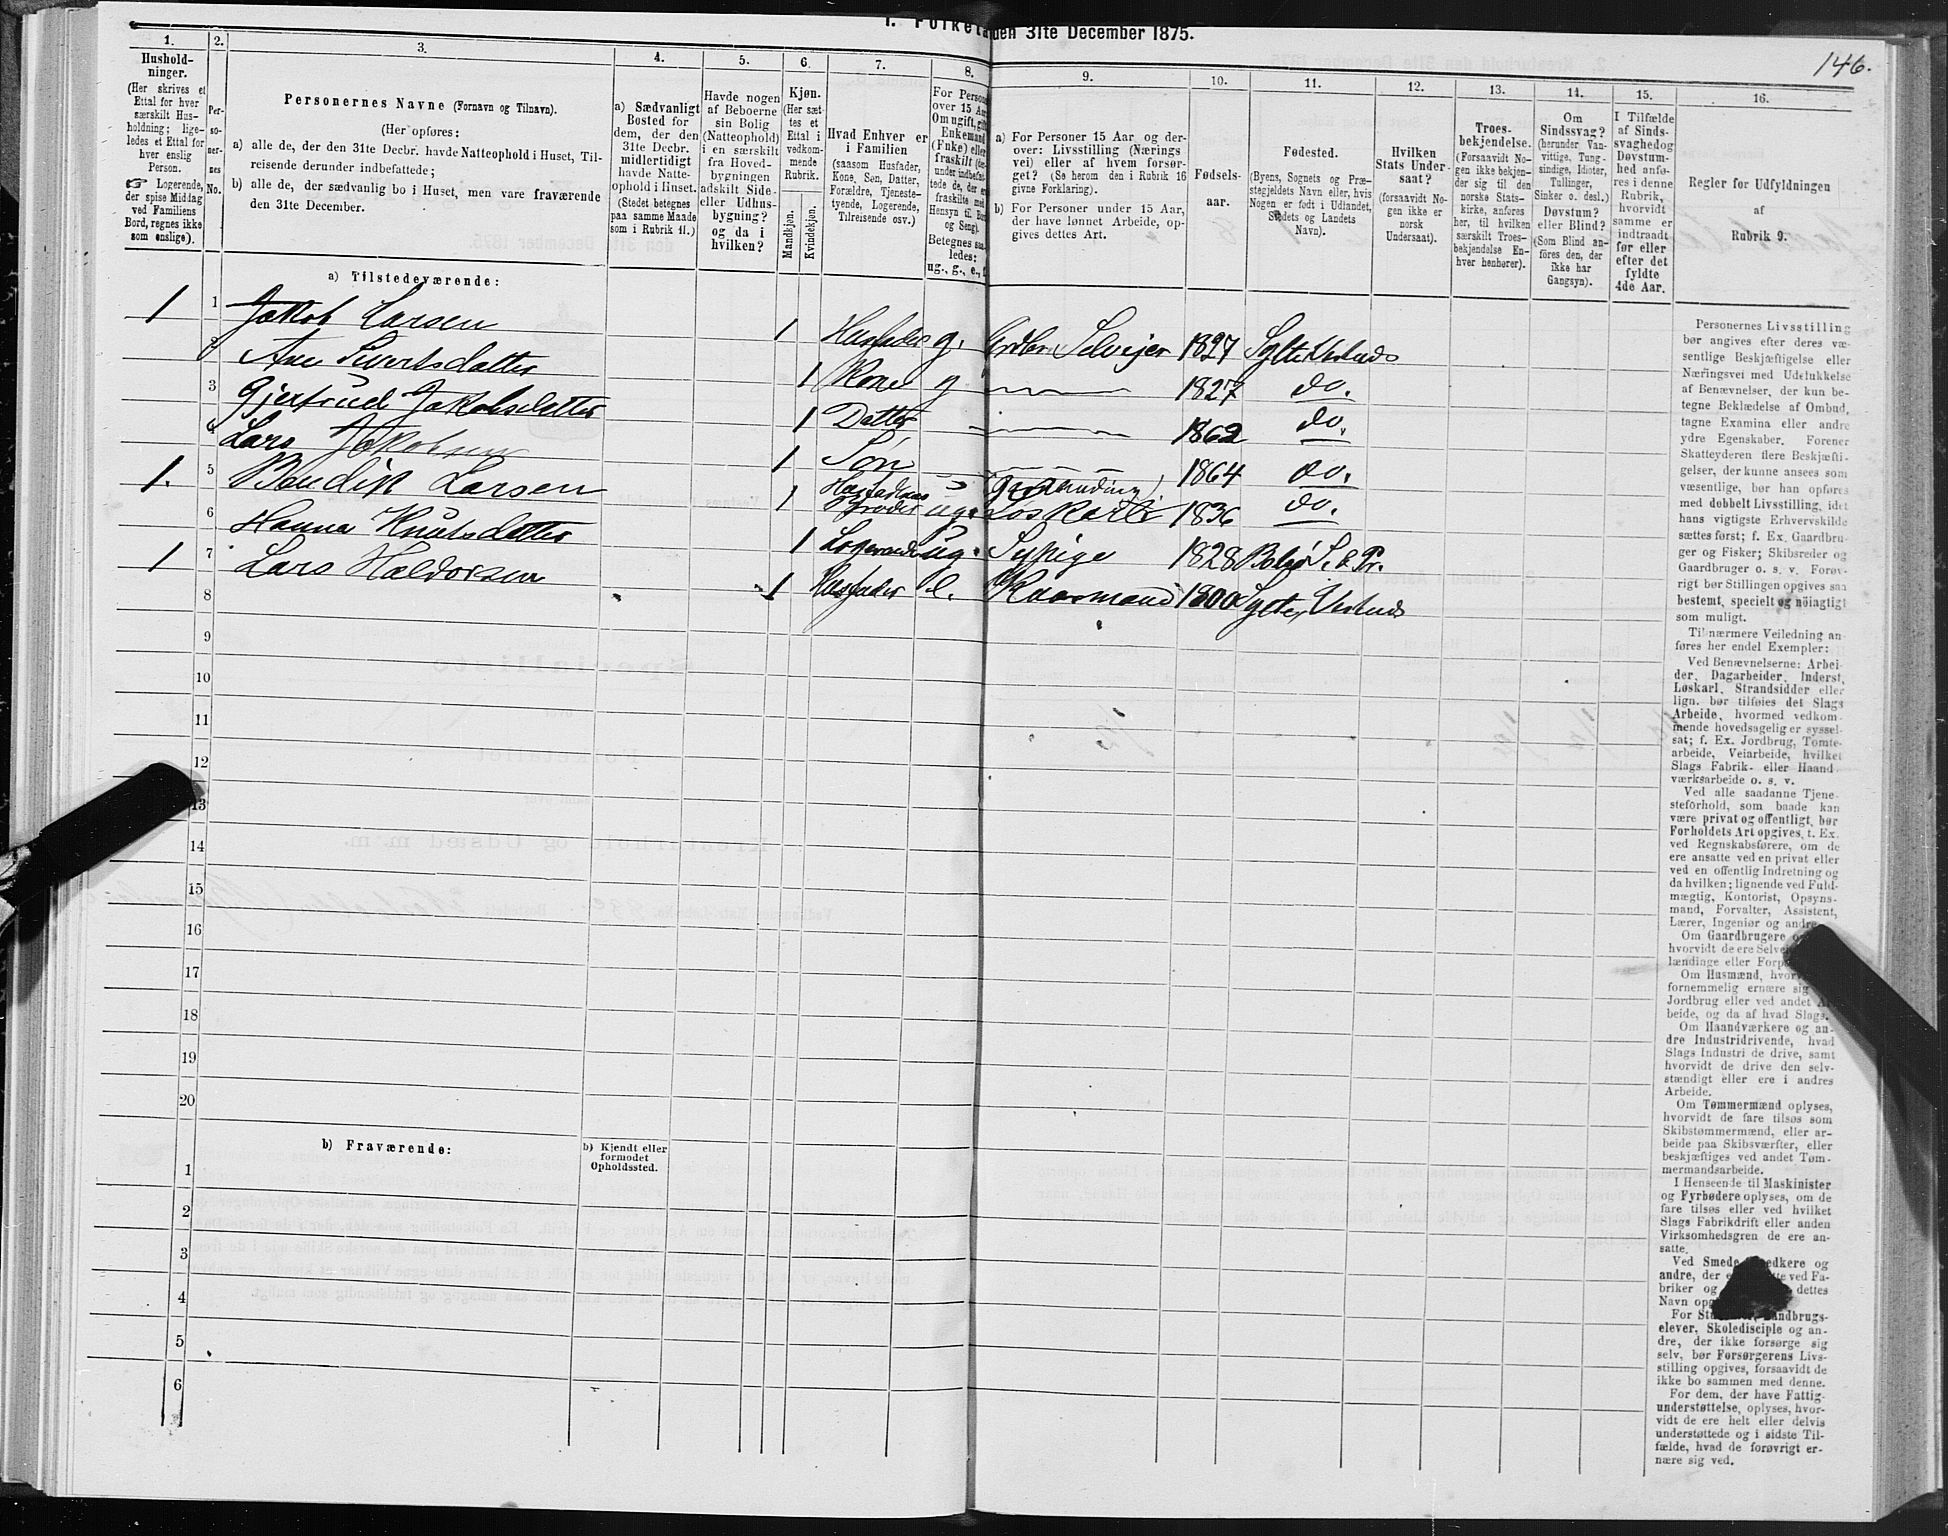 I. Folketal den 31te December 1875.
146.
1.
Husholdninger.
(Her skrives et
Ettal for hver
særskilt Husholdning;
ligeledes et Ettal for
hver enslig
Person.
☞ Logerende,
der spise Middag
ved Familiens
Bord, regnes ikke
som enslige).
2.
Personernes
No.
3.
Personernes Navne (Fornavn og Tilnavn).
(Her opføres:
a) alle de, der den 31te Decbr. havde Natteophold i Huset, Tilreisende derunder indbefattede;
b) alle de, der sædvanlig bo i Huset, men vare fraværende
den 31te December.
4.
a) Sædvanligt
Bosted for
dem, der den
31te Decbr.
midlertidigt
havde Natteophold i Huset.
(Stedet betegnes
paa samme Maade
som i Rubrik 11.)
5.
Havde nogen
af Beboerne
sin Bolig
(Natteophold)
i en særskilt
fra Hovedbygningen
adskilt Side-
eller Udhusbygning?
og da i
hvilken?
6.
Kjøn.
(Her sættes et
Ettal i
vedkommende
Rubrik.
Mandkjøn.
Kvindekjøn.
7.
Hvad Enhver er
i Familien
(saasom Husfader,
Kone, Søn, Datter,
Forældre, Tjenestetyende, Logerende,
Tilreisende osv.)
8.
For Personer
over 15 Aar:
Om ugift, gift,
Enkemand
(Enke) eller
fraskilt
Betegnes saaledes:
ug., g., e., f.
9.
a) For Personer 15 Aar og derover: Livsstilling (Næringsvei) eller af hvem forsørget? (Se herom den i Rubrik 16
givne Forklaring).
b) For Personer under 15 Aar,
der have lønnet Arbeide, opgives dettes Art.
10.
Fødselsaar.
11.
Fødested.
(Byens, Sognets og Præstegjeldets Navn eller, hvis
Nogen er født i Udlandet,
Stedets og Landets
Navn).
12.
Hvilken
Stats Undersaat?
(forsaavidt Nogen ikke er
norsk
Undersaat).
13.
Troesbekjendelse.
(Forsaavidt Nogen ikke bekjender sig til den
norske Statskirke, anføres
her, til hvilken
særskilt Troesbekjendelse Enhver henhører).
14.
Om
Sindssvag?
(herunder Vanvittige, Tungsindige, Idioter,
Tullinger,
Sinker o. desl.)
Døvstum?
eller Blind?
(Som Blind anføres den, der
ikke har
Gangsyn).
15.
I Tilfælde
af Sindssvaghed og
Døvstumhed anføres i denne
Rubrik,
hvorvidt
samme er
indtraadt
før eller
efter det
fyldte
4de Aar.
16.
Regler for Udfyldningen
af
Rubrik 9.
a) Tilstedeværende:
1 1 Jakob Larsen 1 Husfader g. Selveier 1827 Sylte Vestnes
2 Ane Sivertsdatter 1 Kone g 1827 do.
3 Gjertrud Jakobsdatter 1 Datter 1862 do.
4 Lars Jakobsen 1 Søn 1864 do.
1. 5 Bendik Larsen 1 Husfaders Broder ug. Løskarl 1836 do.
6 Hanna Knutsdatter 1 Logerende ug. Sypige 1828 Bolsø S. & Pr.
1 7 Lars Haldorsen 1 Husfader e. Kaarmand 1800 Sylte, Vestnes
8
9
10
11
12
13
14
15
16
17
18
19
20
b) Fraværende:
b) Kjendt eller
formodet
Opholdssted.
1
2
3
4
5
6
Personernes Livsstilling
bør angives efter deres væsentlige Beskjæftigelse eller
Næringsvei med Udelukkelse
af Benævnelser, der kun betegne Beklædelse af Ombud,
tagne Examina eller andre
ydre Egenskaber. Forener
Skatteyderen flere Beskjæftigelser, der kunne ansees som
væsentlige, bør han opføres
med dobbelt Livsstilling, idet
hans vigtigste Erhvervskilde
sættes først; f. Ex. Gaardbruger og Fisker; Skibsreder og
Gaardbruger o. s. v. Forøvrigt bør Stillingen opgives saa
bestemt, specielt og nöiagtigt
som muligt.
Til nærmere Veiledning anføres her endel Exempler:
Ved Benævnelserne: Arbeider, Dagarbeider, Inderst,
Løskarl, Strandsidder eller
lign. bør tilføies det Slags
Arbeide, hvormed vedkommende hovedsagelig er sysselsat; f. Ex. Jordbrug, Tomtearbeide, Veiarbeide, hvilket
Slags Fabrik- eller Haandværksarbeide o. s. v.
Ved alle saadanne Tjenesteförhold, som baade kan
være privat og offentligt, bør
Forholdets Art opgives, t. Ex.
ved Regnskabsførere, om de
ere ansatte ved en privat eller
ved en offentlig Indretning og
da hvilken; lignende ved Fuldmægtig, Kontorist, Opsynsmand, Forvalter, Assistent,
Lærer, Ingeniør og andre.
Om Gaardbrugere
hvorvidt de ere
lændinge eller
Om Husmænd,
fornemmelig ernære sig
Jordbrug eller ved andet Arbeide, og da af hvad Slags.
Om Haandværkere og andre Industridrivende, hvad
Slags Industri de drive, samt
hvorvidt de drive den selvstændigt eller ere i andres
Arbeide.
Om Tømmermænd oplyses,
hvorvidt de fare tilsøs som
Skibstømmermænd, eller arbeide paa Skibsværfter, eller
beskjæftiges ved andet Tømmermandsarbeide.
I Henseende til Maskinister
og Fyrbødere oplyses, om de
fare tilsøs eller ved hvilket
Slags Fabrikdrift eller anden
Virksomhedsgren de ere ansatte.
Ved Smede, og
andre, der ved Fabriker og dettes
Navn
For Landbrugselever, Skoledisciple og andre, der ikke forsørge sig
selv, bør Førsørgerens Livsstilling opgives, forsaavidt de
ikke bo sammen med denne.
For dem, der have Fattigunderstøttelse, oplyses, hvorvidt de ere helt eller delvis
understøttede og i sidste Tilfælde, hvad de forøvrigt ernære sig ved.